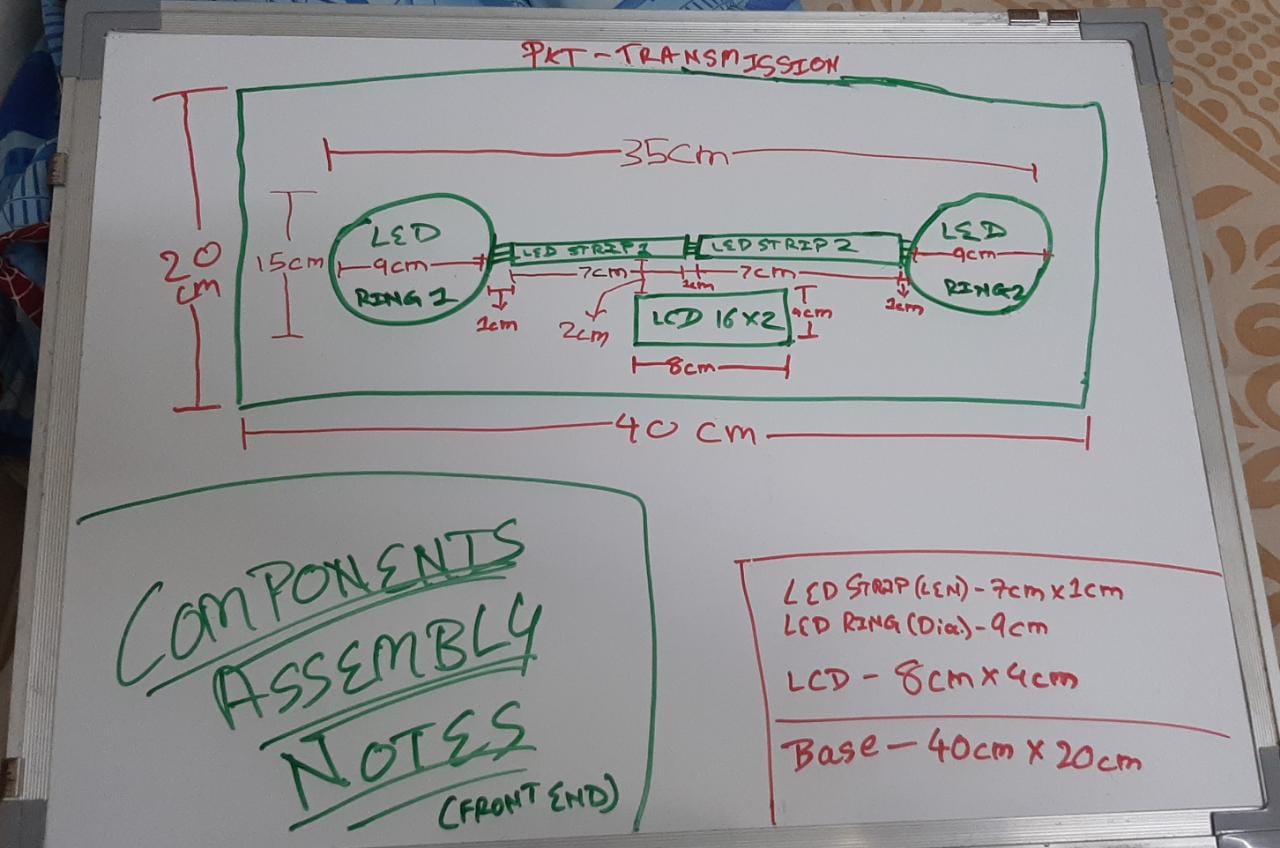 PKT-TRANSMISSION
35cm
20
cm
15cm
LED
9cm
RING 1
LED STRIP 1
LED STRIP 2
LED
9cm
RING 2
7cm
1cm
7cm
1cm
2cm
1cm
LCD 16X2
4cm
8cm
40 cm
COMPONENTS
ASSEMBLY
NOTES
(FRONT END)
LED STRIP(LEN)-7cm x 1cm
LED RING (Dia.)-9cm
LCD - 8cm x 4cm
Base - 40cm x 20cm